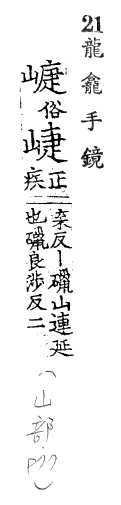 21龍龕手鏡
俗崨正疾
反丨山連延
也良涉反二
(山部.P77)